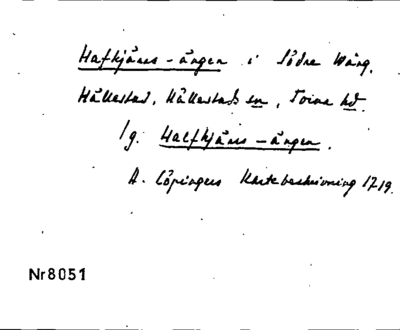 Hafkjäns-ängen i Södra Wång,
Hällestad, Hällestads sn, Torna hd.
/g. Halfkjäns-ängen.
A. Cöpingers Kartebeskrivning 1719.
Nr8051